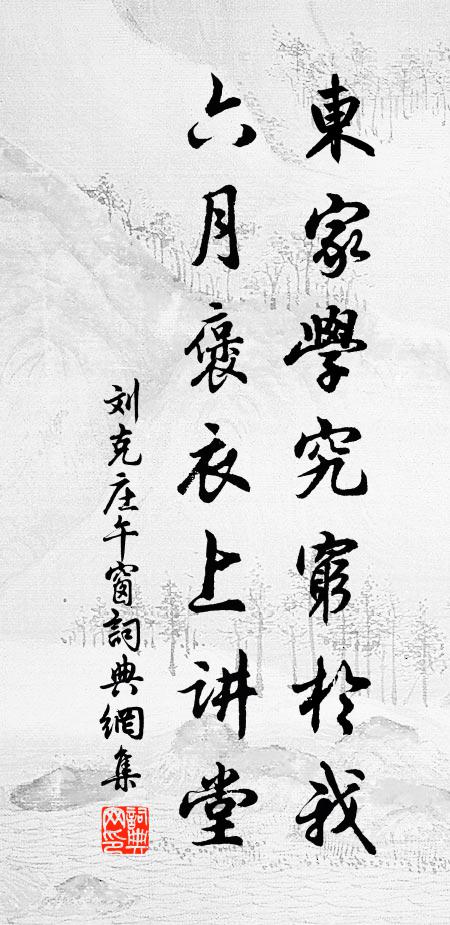 東家學究窮於我
六月褒衣上讲堂
刘克庄午窗詞典網集
詞典
网印